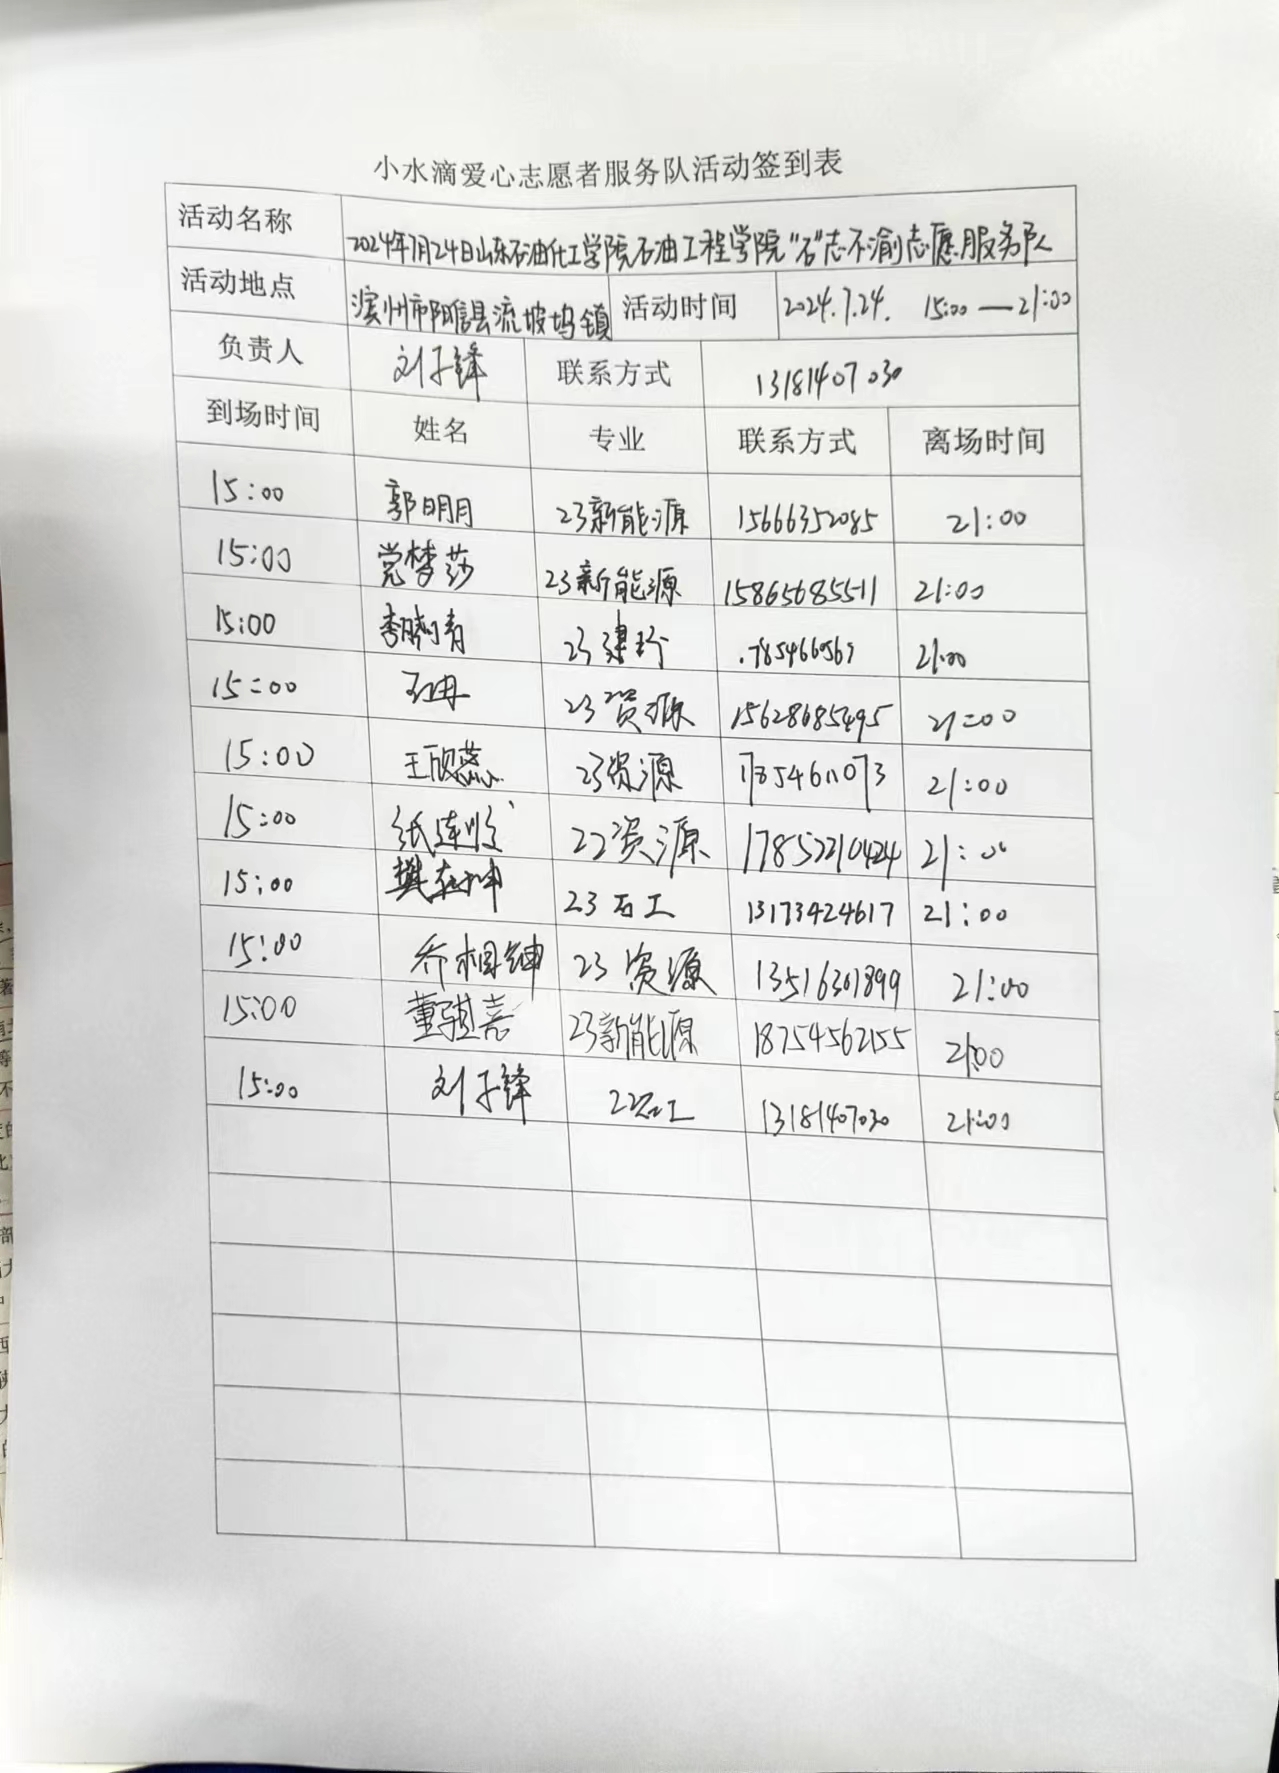 小水滴爱心志愿者服务队活动签到表
活动名称 2024年7月24日山东石油化工学院石油工程学院“石”志不渝志愿服务队
活动地点 滨州市阳信县流坡坞镇 活动时间 2024.7.24. 15:00—21:00
负责人 刘子锋 联系方式 13181407030
到场时间 姓名 专业 联系方式 离场时间
15:00 郭明月 23新能源 15666352085 21:00
15:00 党梦莎 23新能源 15865685511 21:00
15:00 李晓青 23 21:00
15:00 23资源 15628685495 21:00
15:00 王欣蕊 23资源 21:00
15:00 22资源 17852210424 21:00
15:00 樊 23石工 13173424617 21:00
15:00 乔相绅 23资源 13516301899 21:00
15:00 董骐嘉 23新能源 18754562155 21:00
15:00 刘子锋 22石工 13181407030 21:00